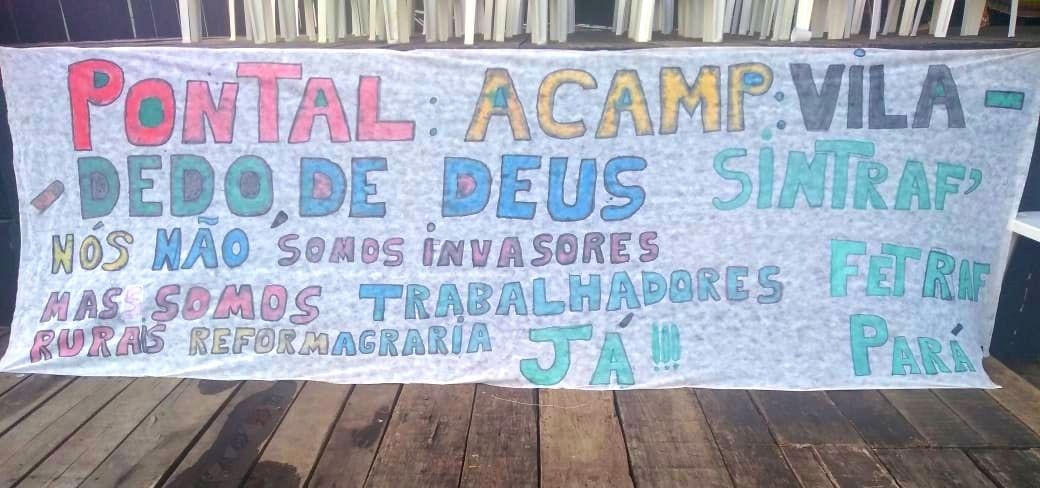 PONTAL: ACAMP: VILA -
DEDO, DE DEUS SINTRAF'
NÓS NÃO SOMOS INVASORES
FETRAF
MAS SOMOS TRABALHADORES
RURAIS REFORMAGRARIA JÁ!!!
PARÁ